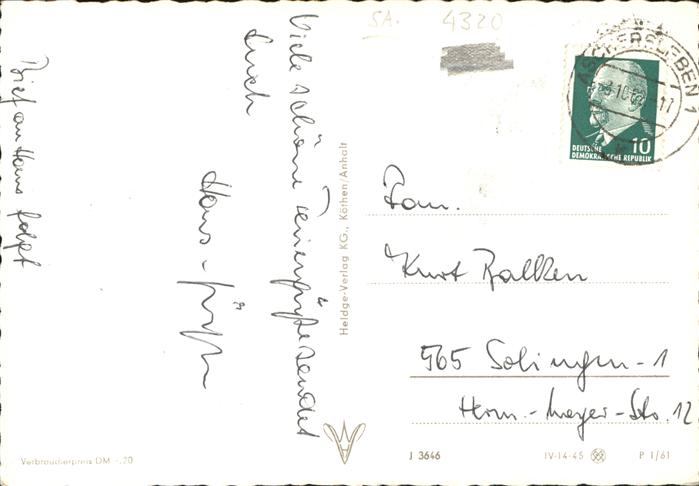 SA. 4320
Viele schöne Feriengrüße sendet
Euch
Hans-
Brief an Hans folgt
Heldge-Verlag KG., Köthen/Anhalt
ASCHERSLEBEN 1
DEUTSCHE
DEMOKRATISCHE REPUBLIK
10
Fam.
Kurt Balken
565 Solingen-1
Herm.-Meyer-Str. 12
Verbraucherpreis DM -,20
J 3646
IV-14-45
P 1/61